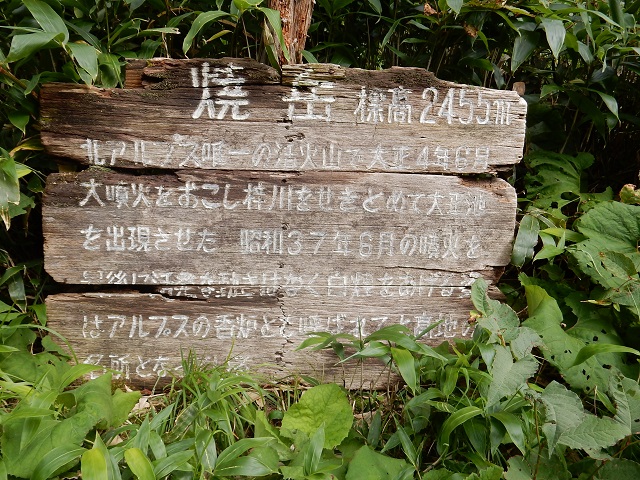 焼岳 標高2455m
北アルプス唯一の活火山で大正4年6月
大噴火をおこし梓川をせきとめて大正池
を出現させた 昭和37年6月の噴火を
最後に
はアルプスの香炉とも呼ばれて上高地の
名所とな